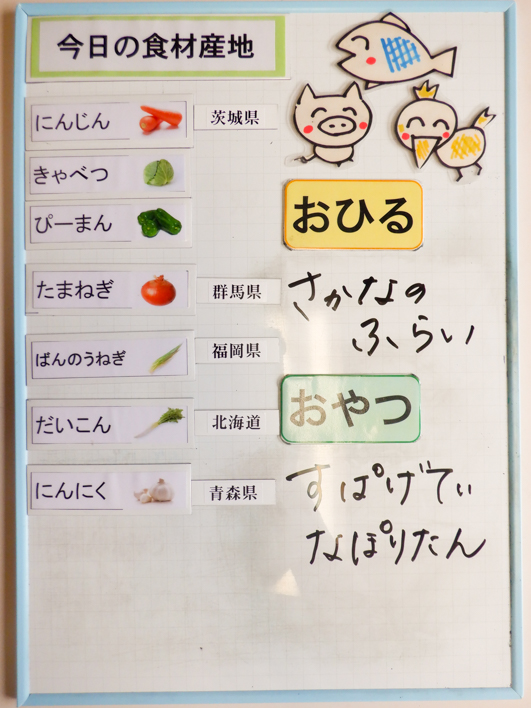 今日の食材産地
にんじん 茨城県
きゃべつ
ぴーまん
たまねぎ 群馬県
ばんのうねぎ 福岡県
だいこん 北海道
にんにく 青森県
おひる
さかなの
ふらい
おやつ
すぱげてぃ
なぽりたん